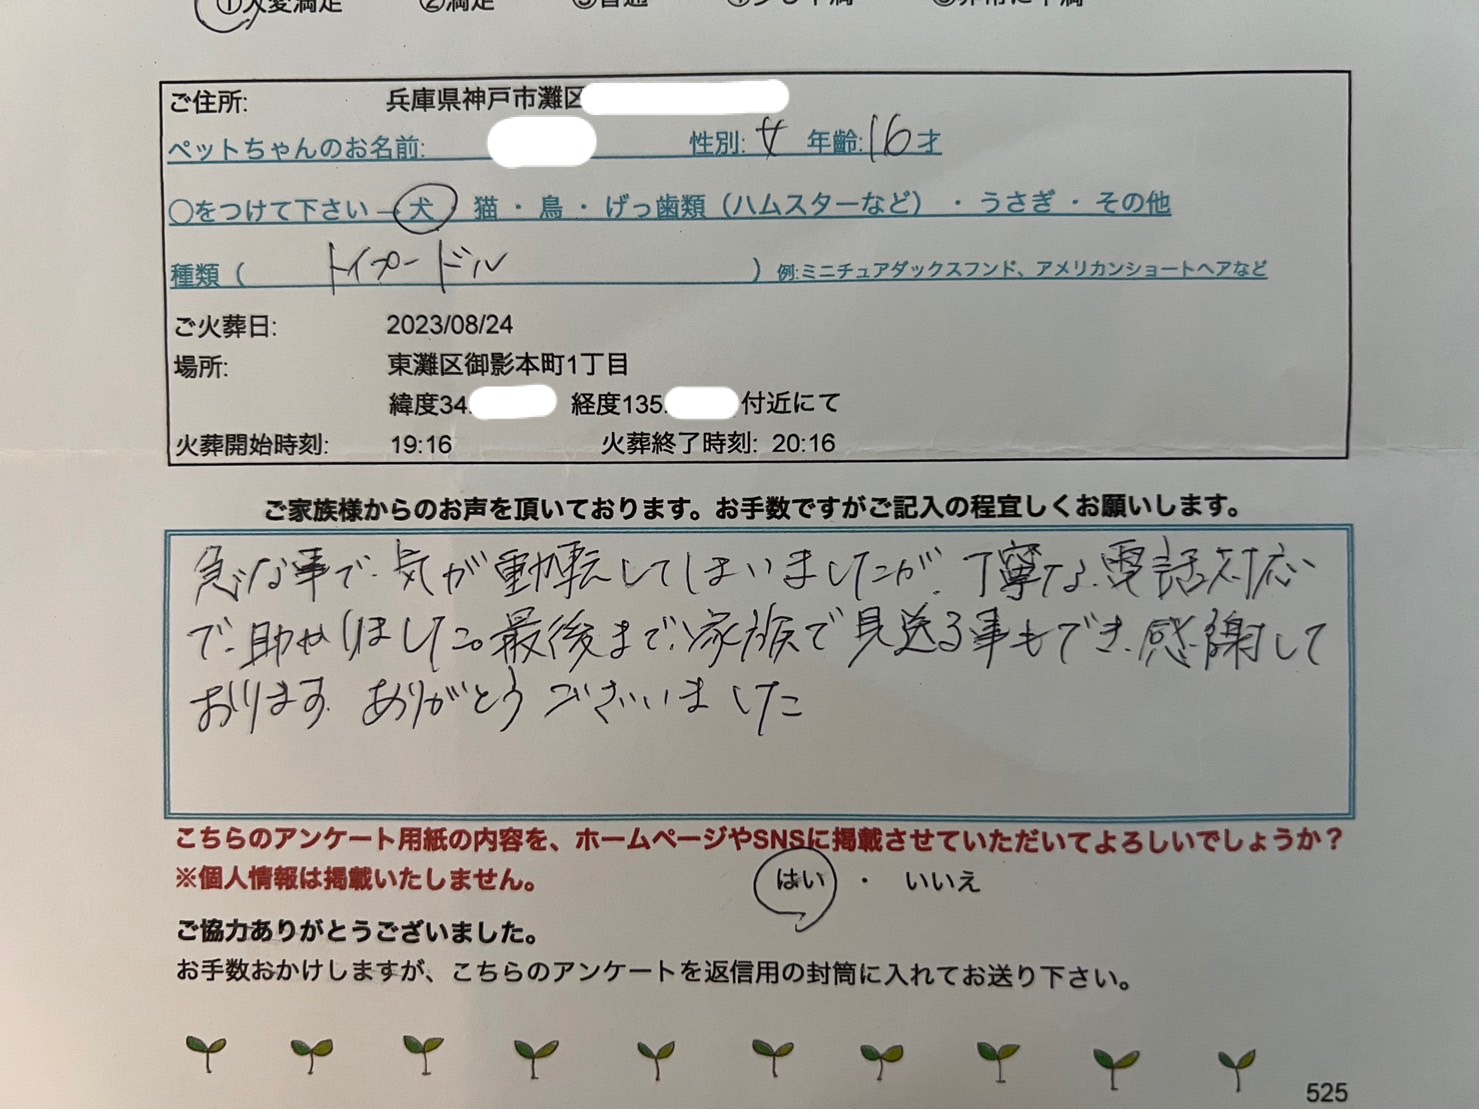 ①大変満足 ②満足 ③普通 ④少し不満 ⑤非常に不満
ご住所: 兵庫県神戸市灘区
ペットちゃんのお名前: 性別:女 年齢:16才
○をつけて下さい→犬 猫・鳥・げっ歯類（ハムスターなど）・うさぎ・その他
種類（ トイプードル ）例:ミニチュアダックスフンド、アメリカンショートヘアなど
ご火葬日: 2023/08/24
場所: 東灘区御影本町1丁目
緯度34. 経度135. 付近にて
火葬開始時刻: 19:16 火葬終了時刻: 20:16
ご家族様からのお声を頂いております。お手数ですがご記入の程宜しくお願いします。
急な事で、気が動転してしまいましたが、丁寧な電話対応
で、助かりました。最後まで家族で見送る事もでき、感謝して
おります。ありがとうございました
こちらのアンケート用紙の内容を、ホームページやSNSに掲載させていただいてよろしいでしょうか？
※個人情報は掲載いたしません。 はい ・ いいえ
ご協力ありがとうございました。
お手数おかけしますが、こちらのアンケートを返信用の封筒に入れてお送り下さい。
525